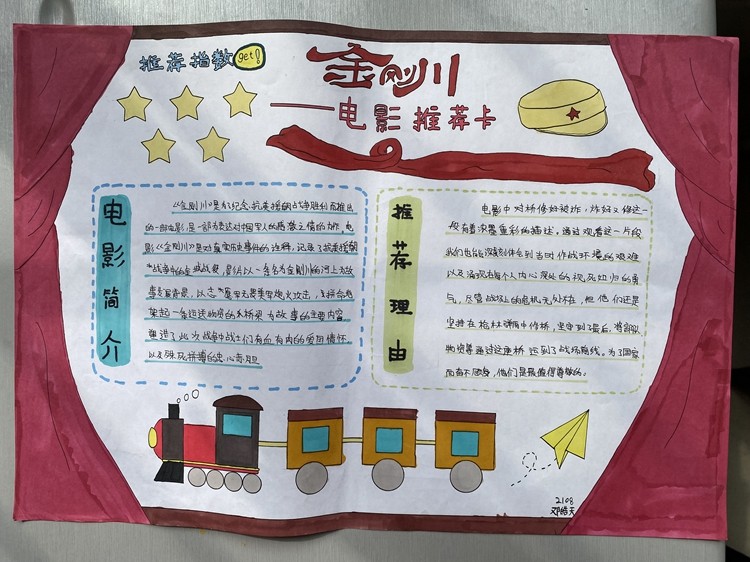 推荐指数 get!
金刚川
——电影推荐卡
电影简介
《金刚川》是为纪念抗美援朝战争胜利而推出
的一部电影,是一部为表达对中国军人的感激之情的力作。电
影《金刚川》是对真实历史事件的诠释,记录了抗美援朝
战争中的金城战役,是以一条名为金刚川的河上为故
事背景,以志愿军无畏美军炮火攻击,
架起一条运送物资的木桥梁为故事的主要内容,
推进了此次战争中战士们有血有肉的爱国情怀
以及殊死拼搏的忠心赤胆
推荐理由
电影中对桥修好被炸,炸好又修这一
段有着浓墨重彩的描述。通过观看这一片段
我们也能深刻体会到当时作战环境的艰难
以及涌现出每个人内心深处的视死如归的勇
气,尽管战场上的危机无处不在,但他们还是
坚持在枪林弹雨中作桥,坚守到最后,将部队
物资等通过这座桥运到了战场前线。为了国家
而奋不顾身,他们是最值得尊敬的。
2108
邓皓天